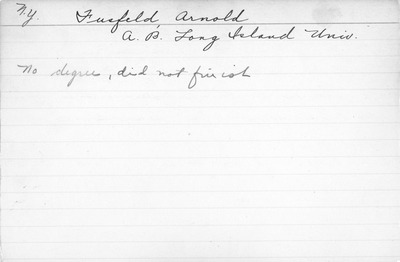 N.Y. Fusfeld, Arnold
A. B. Long Island Univ.
No degree, did not finish